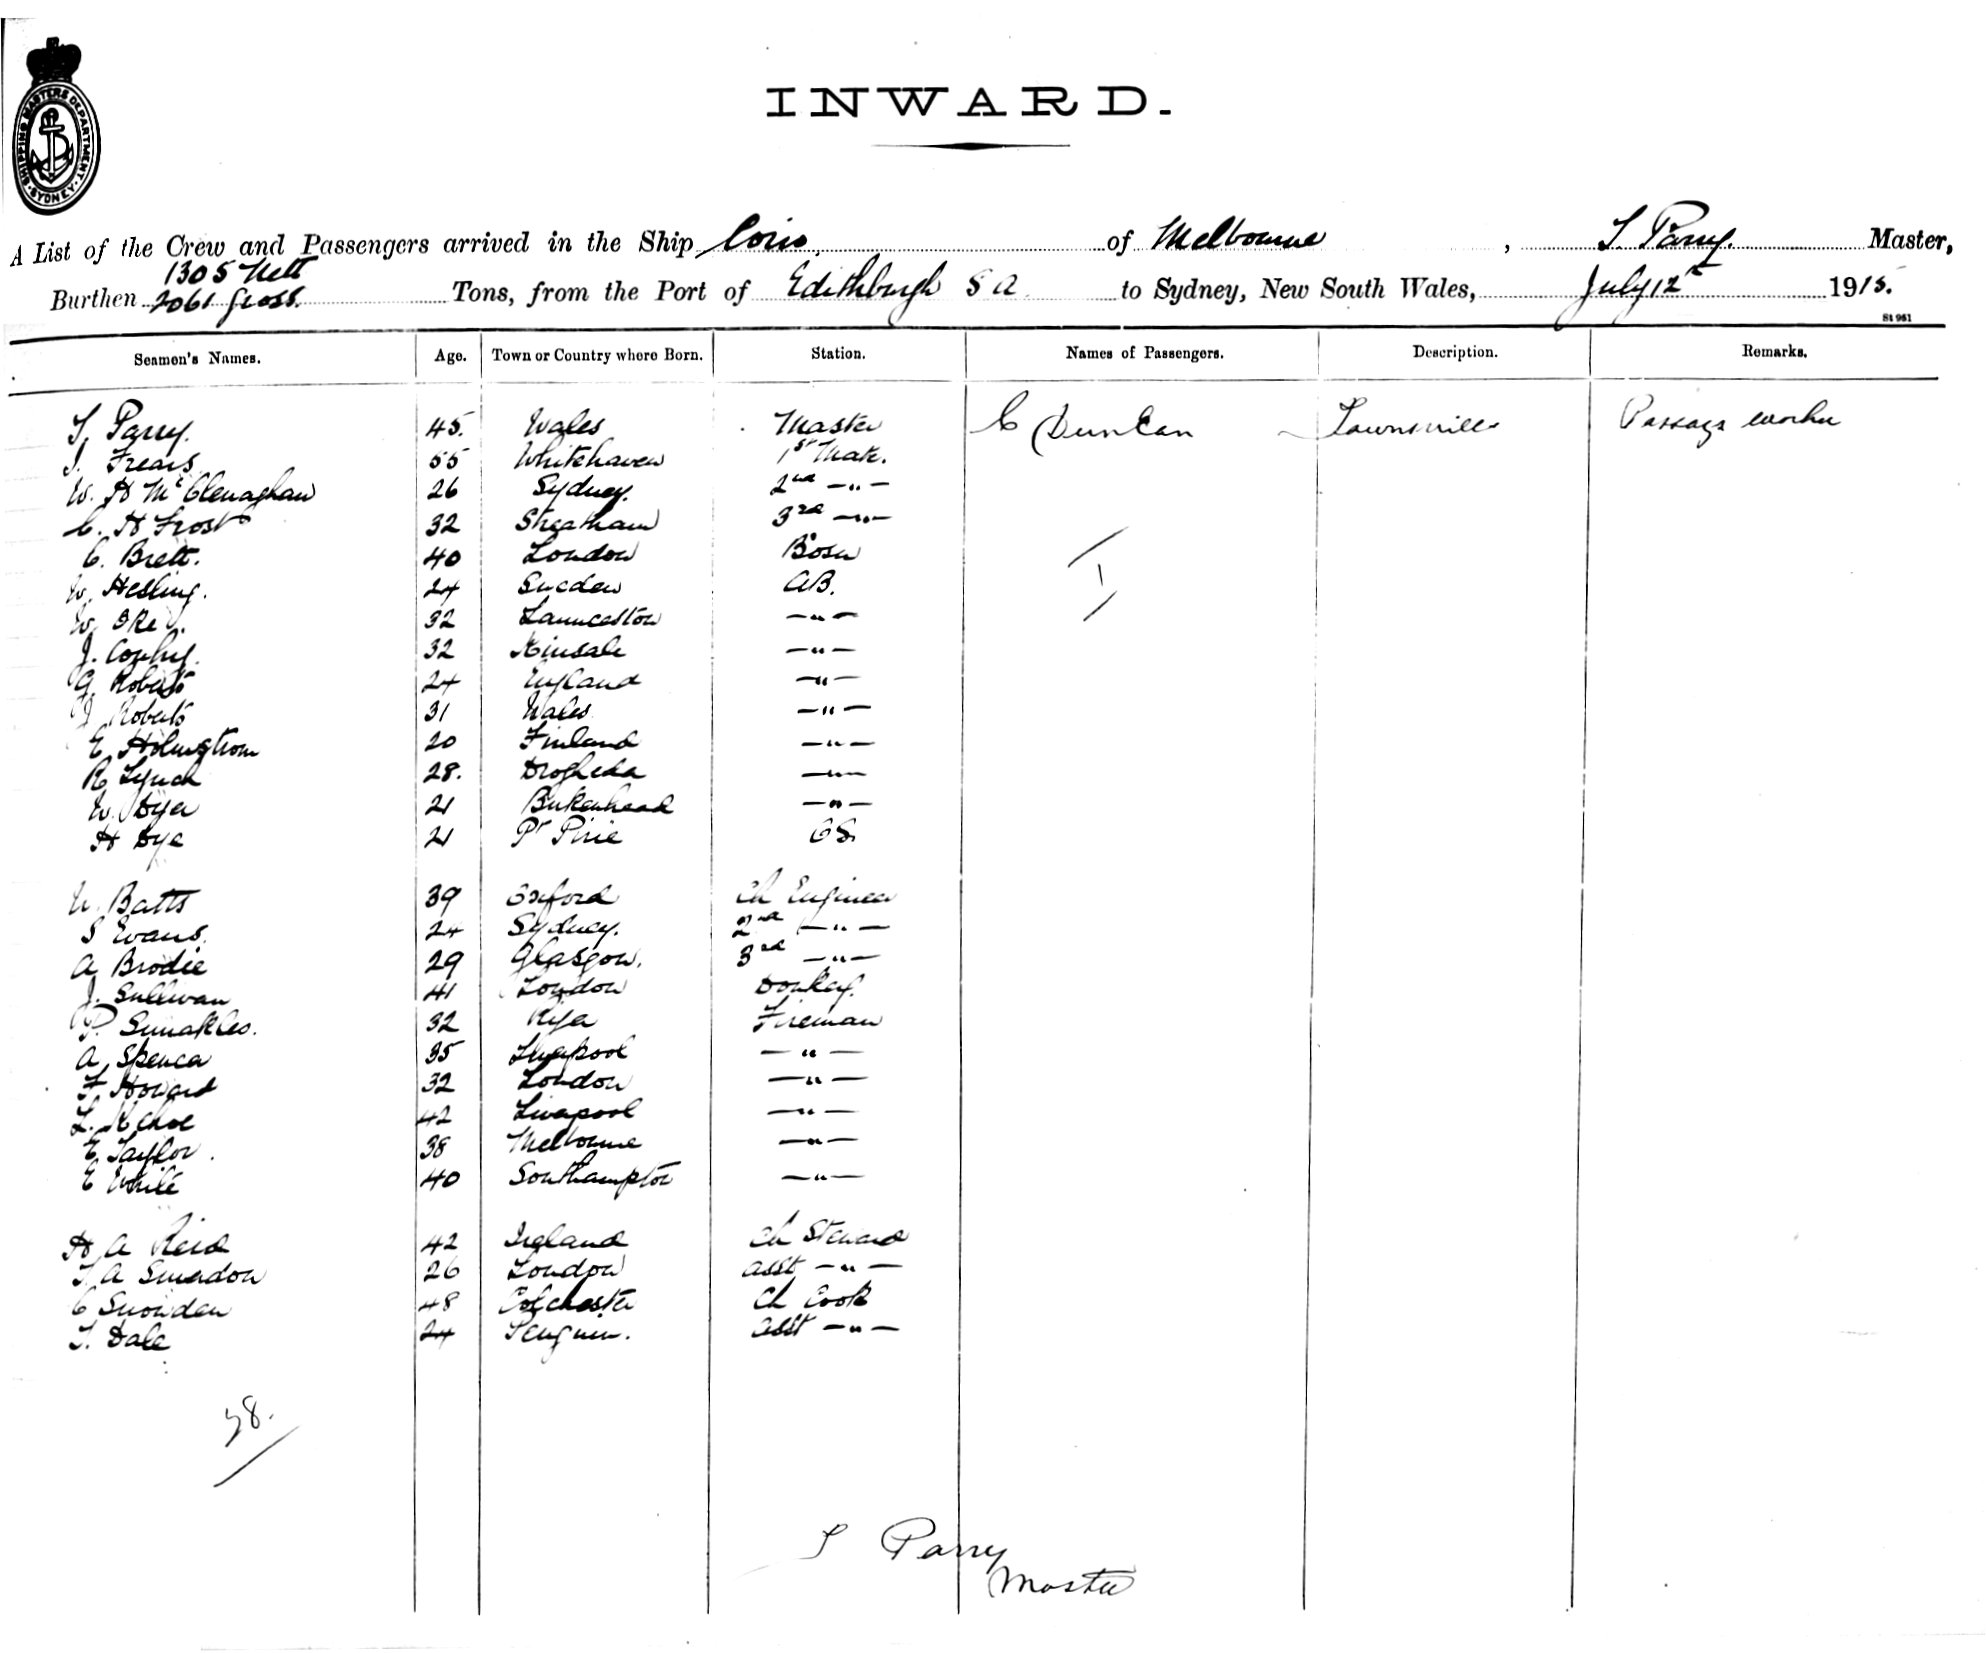 SHIPPING MASTERS DEPARTMENT. SYDNEY
INWARD.
A List of the Crew and Passengers arrived in the Ship Corio, of Melbourne, T Parry. Master,
1305 Nett
Burthen 2061 Gross. Tons, from the Port of Edithburgh S A to Sydney, New South Wales, July 12th 1915.
St 951
Seamen's Names. Age. Town or Country where Born. Station. Names of Passengers. Description. Remarks.
T, Parry. 45. Wales Master C Duncan Townsville Passage worker
J. Frears 55 Whitehaven 1st Mate.
W. H McClenaghan 26 Sydney. 2nd —"—
C. H Frost 32 Streatham 3rd —"—
C. Brett. 40 London Bosn
W. Hesling. 24 Sweden AB.
W. 32 Launceston —"—
J. 32 Kinsale —"—
G. Roberts 24 England —"—
J Roberts 31 Wales —"—
E Holmstrom 20 Finland —"—
R Lynch 28. Drogheda —"—
W. Dyer 21 Birkenhead —"—
H Dye 21 Pt Pirie OS.
W. Batts 39 Oxford Ch Engineer
S Evans. 24 Sydney. 2nd —"—
A Brodie 29 Glasgow. 3rd —"—
J. Sullivan 41 London Donkey.
P. 32 Riga Fireman
A Spence 35 Liverpool —"—
F. Howard 32 London —"—
L. Kehoe 42 Liverpool —"—
E. Taylor. 38 Melbourne —"—
E White 40 Southampton —"—
H A Reid 42 Ireland Ch Steward
T A Smeadon 26 London asst —"—
C Snowden 48 Colchester Ch Cook
T. Dale 24 Penguin. asst —"—
28.
T Parry
Master